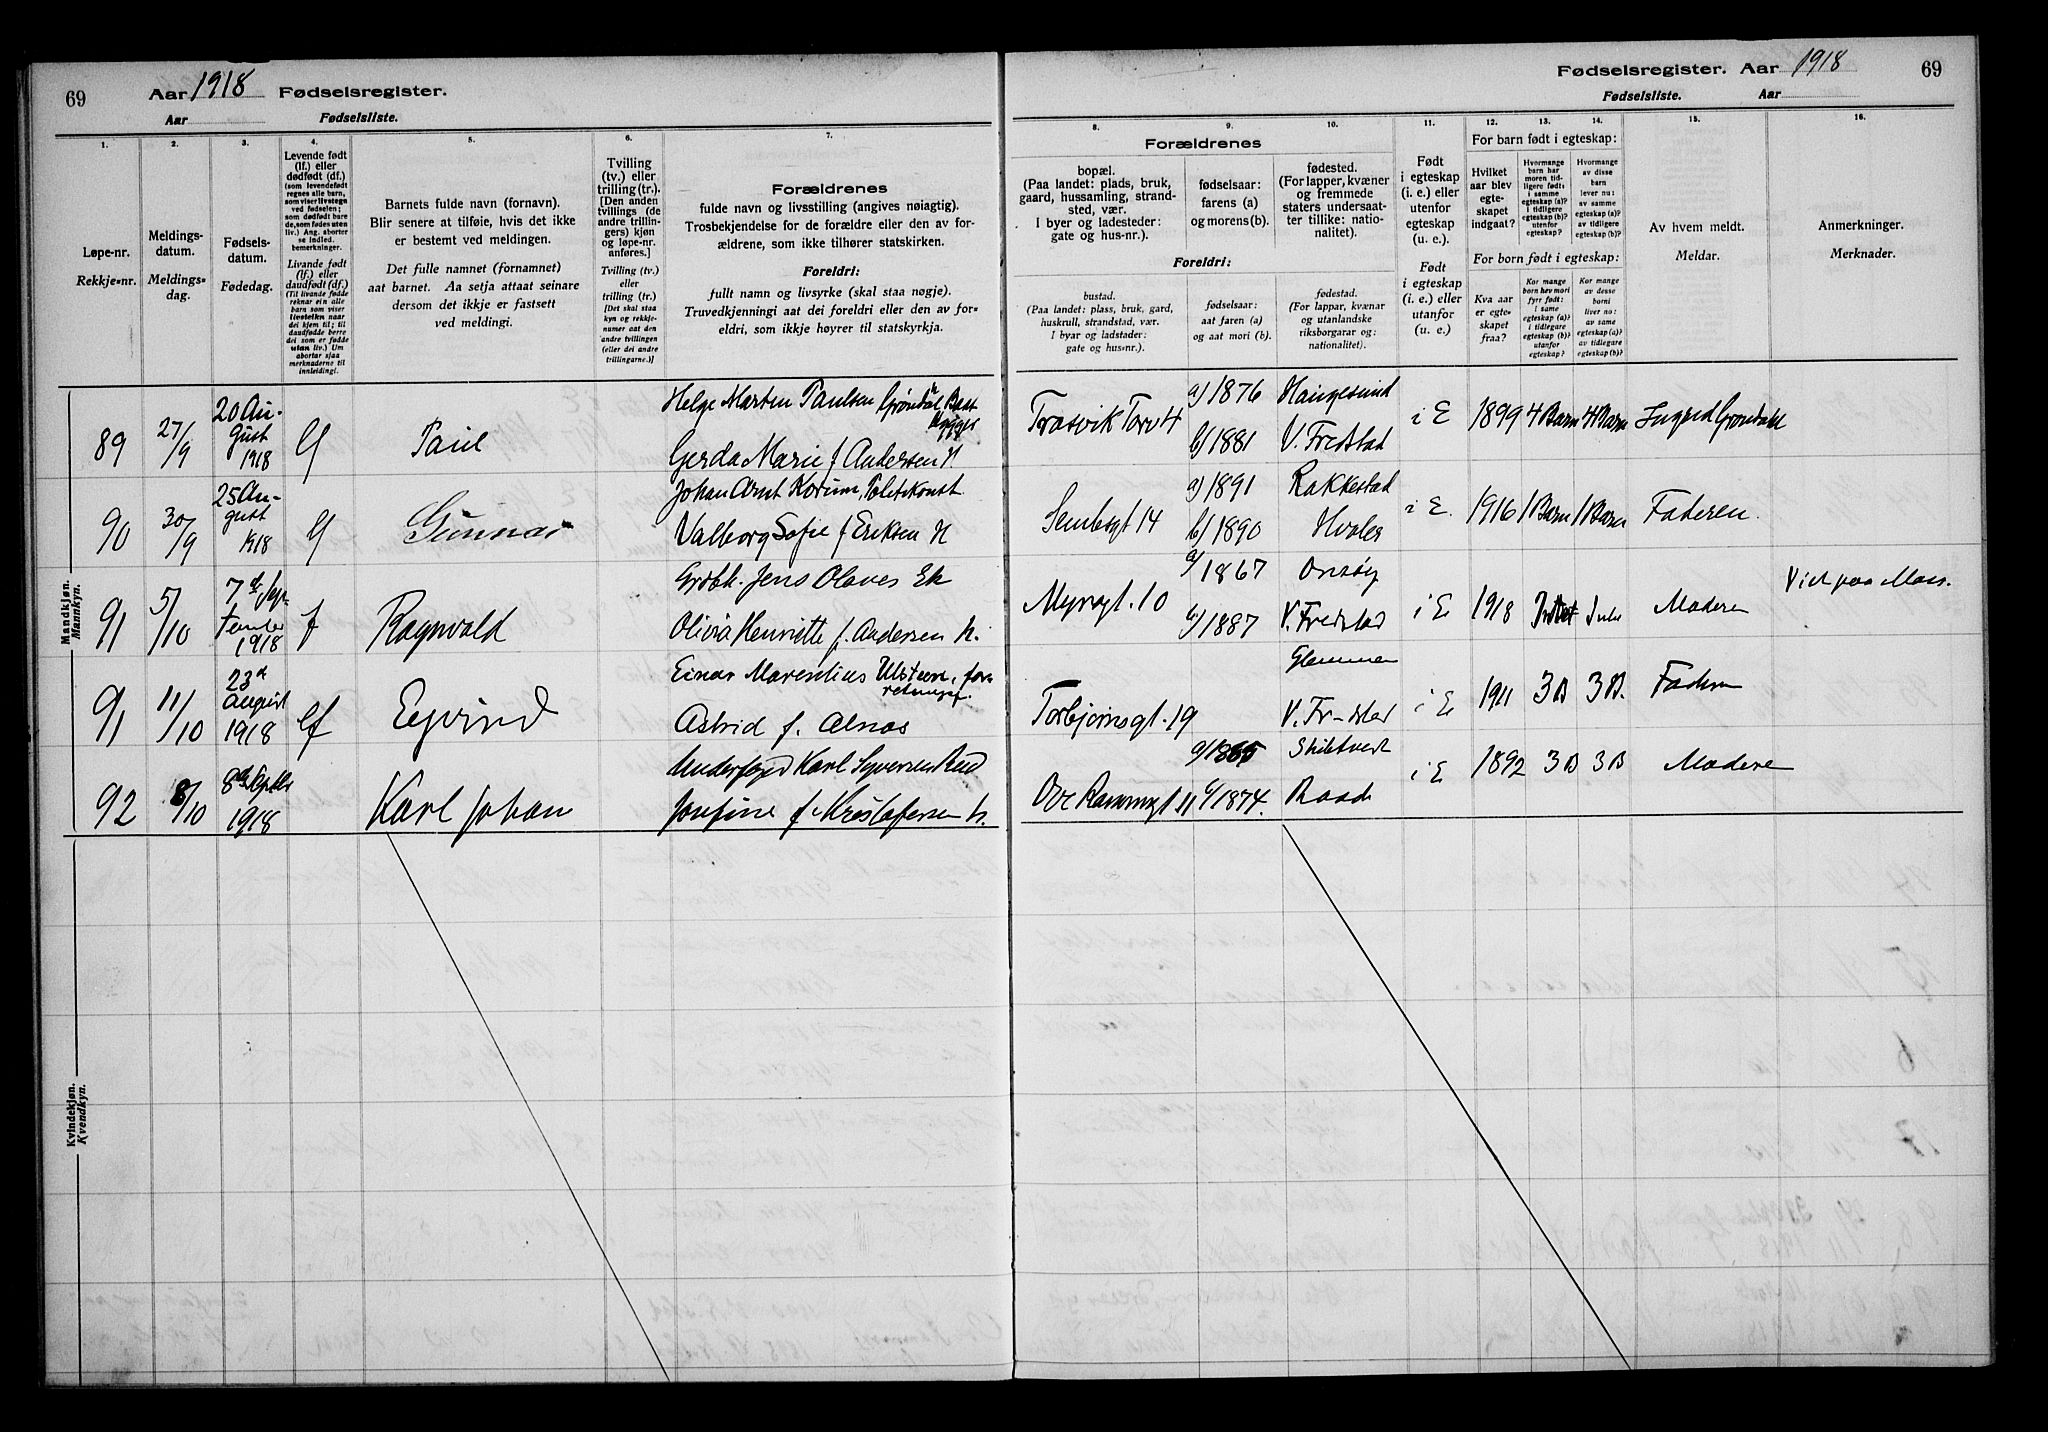 69
Aar 1918 Fødselsregister.
Aar Fødselsliste.
1.
Løpe-nr.
Rekkje=nr.
2.
Meldings-
datum.
Meldings=
dag.
3.
Fødsels-
datum.
Fødedag.
4.
Levende født
(lf.) eller
dødfødt (df.)
(som levendefødt
regnes alle barn,
som viser livstegn
ved fødselen;
som dødfødt bare
de, som fødes uten
liv.) Ang. aborter
se indled.
bemerkninger.
Livande født
(lf.) eller
daudfødt (df.)
(Til livande fødde
reknar ein alle
barn som viser
livsteikn naar
dei kjem til; til
daudfødde berre
dei som er fødde
utan liv.) Um
abortar sjaa
merknaderne til
innleidingi.
5.
Barnets fulde navn (fornavn).
Blir senere at tilføie, hvis det ikke
er bestemt ved meldingen.
Det fulle namnet (fornamnet)
aat barnet. Aa setja attaat seinare
dersom det ikkje er fastsett
ved meldingi.
6.
Tvilling
(tv.) eller
trilling (tr.).
[Den anden
tvillings (de
andre trillin-
gers) kjøn
og løpe-nr.
anføres.]
Tvilling (tv.)
eller
trilling (tr.)
[Det skal staa
kyn og rekkje-
numer aat den
andre tvillingen
(eller dei andre
trillingarne.)]
7.
Forældrenes
fulde navn og livsstilling (angives nøiagtig).
Trosbekjendelse for de forældre eller den av for-
ældrene, som ikke tilhører statskirken.
Foreldri:
fullt namn og livsyrke (skal staa nøgje).
Truvedkjenningi aat dei foreldri eller den av for=
eldri, som ikkje høyrer til statskyrkja.
Mandkjøn.
Mannkyn.
89 27/9 20 Au-
gust
1918 Paul
Helge Marten Paulsen Grøndal
Gerda Marie f Andersen
90 30/9 25 Au-
gust
1918 Gunnar
Johan Arnt Korum, Politikonst.
Valborg Sofie f Eriksen
91 5/10 7
1918 f Ragnvald
Jens Olaves Ek
Olivia Henriette f. Andersen h.
91 11/10 23
August
1918 lf Eyvind
Einar Marentius
Astrid f. Alnæs
92 8/10 8
1918 Karl Johan
Karl Syversen Rud
Josefine f Kristofersen h.
Kvindekjøn.
Kvendkyn.
Fødselsregister. Aar 1918 69
Fødselsliste. Aar
8.
Forældrenes
bopæl.
(Paa landet: plads, bruk,
gaard, hussamling, strand-
sted, vær.
I byer og ladesteder:
gate og hus-nr.).
Foreldri:
bustad.
(Paa landet: plass, bruk, gard,
huskrull, strandstad, vær.
I byar og ladstader:
gate og hus=nr.).
9.
fødselsaar:
farens (a)
og morens (b).
fødselsaar:
aat faren (a)
og aat mori (b).
10.
fødested.
(For lapper, kvæner
og fremmede
staters undersaat-
ter tillike: natio-
nalitet).
fødestad.
(For lappar, kvænar
og utanlandske
riksborgarar og:
nationalitet).
11.
Født
i egteskap
(i. e.) eller
utenfor
egteskap
(u. e.).
Født
i egteskap
(i. e.) eller
utanfor
(u. e.).
12. 13. 14.
For barn født i egteskap:
Hvilket
aar blev
egte-
skapet
indgaat?
Hvormange
barn har
moren tid-
ligere født:
i samme
egteskap (a)?
i tidligere
egteskap (b)?
utenfor
egteskap?
Hvormange
av disse
barn
lever nu:
av samme
egteskap (a)?
av tidligere
egteskap (b)?
For born født i egteskap:
Kva aar
er egte-
skapet
fraa?
Kor mange
born hev mori
fyrr født:
i same
egteskap (a)?
i tidlegare
egteskap (b)?
utanfor
egteskap?
Kor mange
av desse
borni
liver no:
av same
egteskap (a)?
av tidlegare
egteskap (b)?
15.
Av hvem meldt.
Meldar.
16.
Anmerkninger.
Merknader.
Trosvik Torv 4 a) 1876 Haugesund
b) 1881 V. Fredstad i E 1899 4 Barn 4 Barn Ingrid Grøndahl
Sembsgt 14 a) 1891 Rakkestad
b) 1890 Hvaler i E. 1916 1 Barn 1 Barn Faderen.
Myragt. 10 a) 1867 Onsøy
b) 1887 V. Fredstad i E 1918 Moderen
Torbjørnsgt. 19 Glemmen
i E 1911 3 B 3 B. Faderen
a) 1865 Skibtvedt
b) 1874. Raade i E 1892 3 B 3 B Moderen